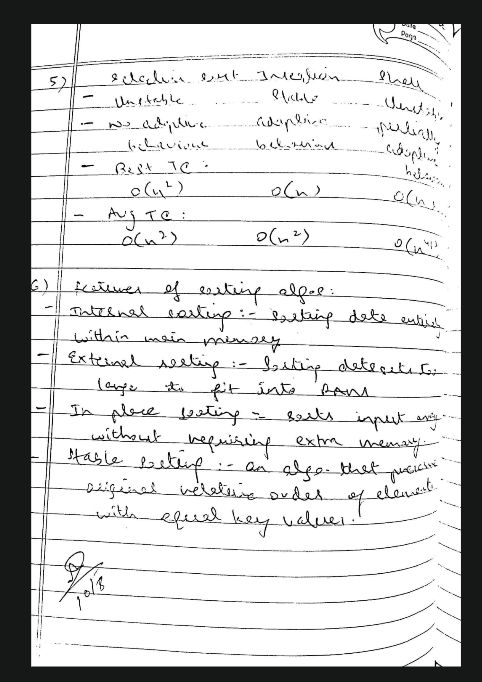 Date
Page
5) Selection sort Insertion Shell
- Unstable Stable Unstable
- No adaptive adaptive partially
behaviour behaviour adaptive
- Best TC :
O(n²) O(n) O(n
- Avg TC :
O(n²) O(n²) O(n
6) Features of sorting algos:
- Internal sorting :- Sorting data entirely
within main memory
- External sorting :- Sorting datasets too
large to fit into RAM
- In place sorting = sorts input array
without requiring extra memory.
- Stable sorting :- an algo. that preserve
original relative order of elements
with equal key values.
10/8